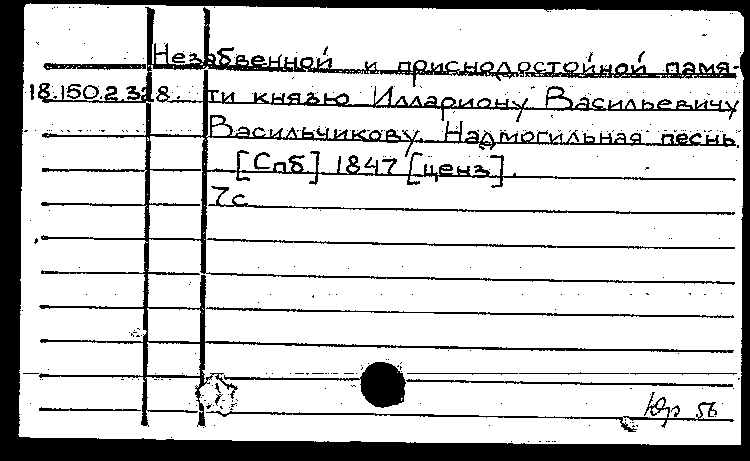 Незабвенной и приснодостойной памя-
18.150.2.328. ти князю Иллариону Васильевичу
Васильчикову. Надмогильная песнь.
[Спб] 1847 [ценз].
7с
Юр 56